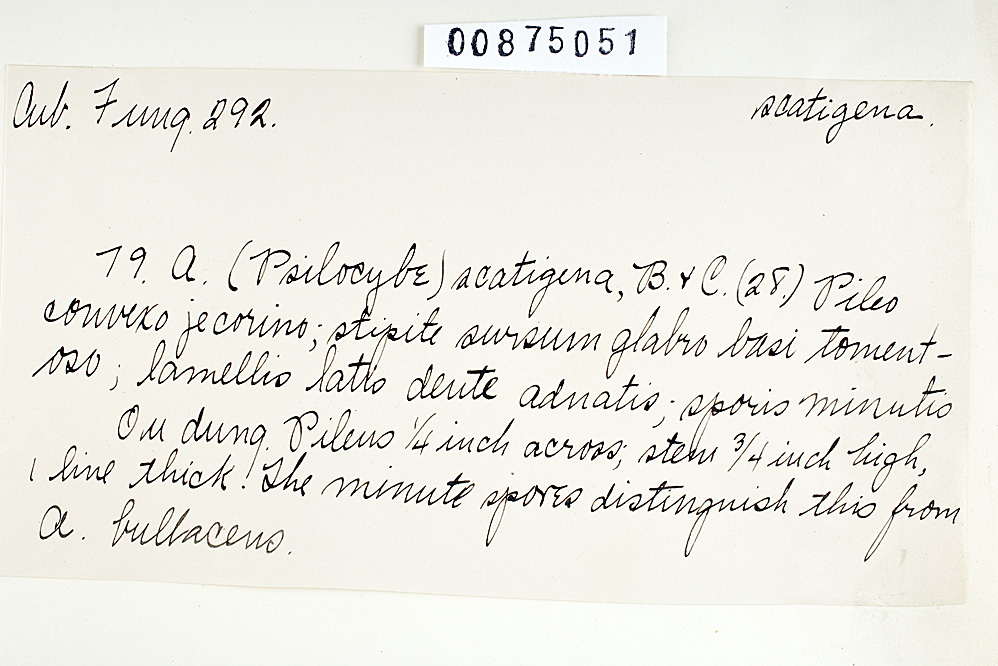 00875051
Cub. Fung. 292. scatigena.
79. A. (Psilocybe) scatigena, B. & C. (28.) Pileo
convexo jecorino; stipite sursum glabro basi toment-
oso; lamellis latis dente adnatis; sporis minutis
On dung. Pileus 1/4 inch across; stem 3/4 inch high,
1 line thick. The minute spores distinguish this from
A. bullaceus.